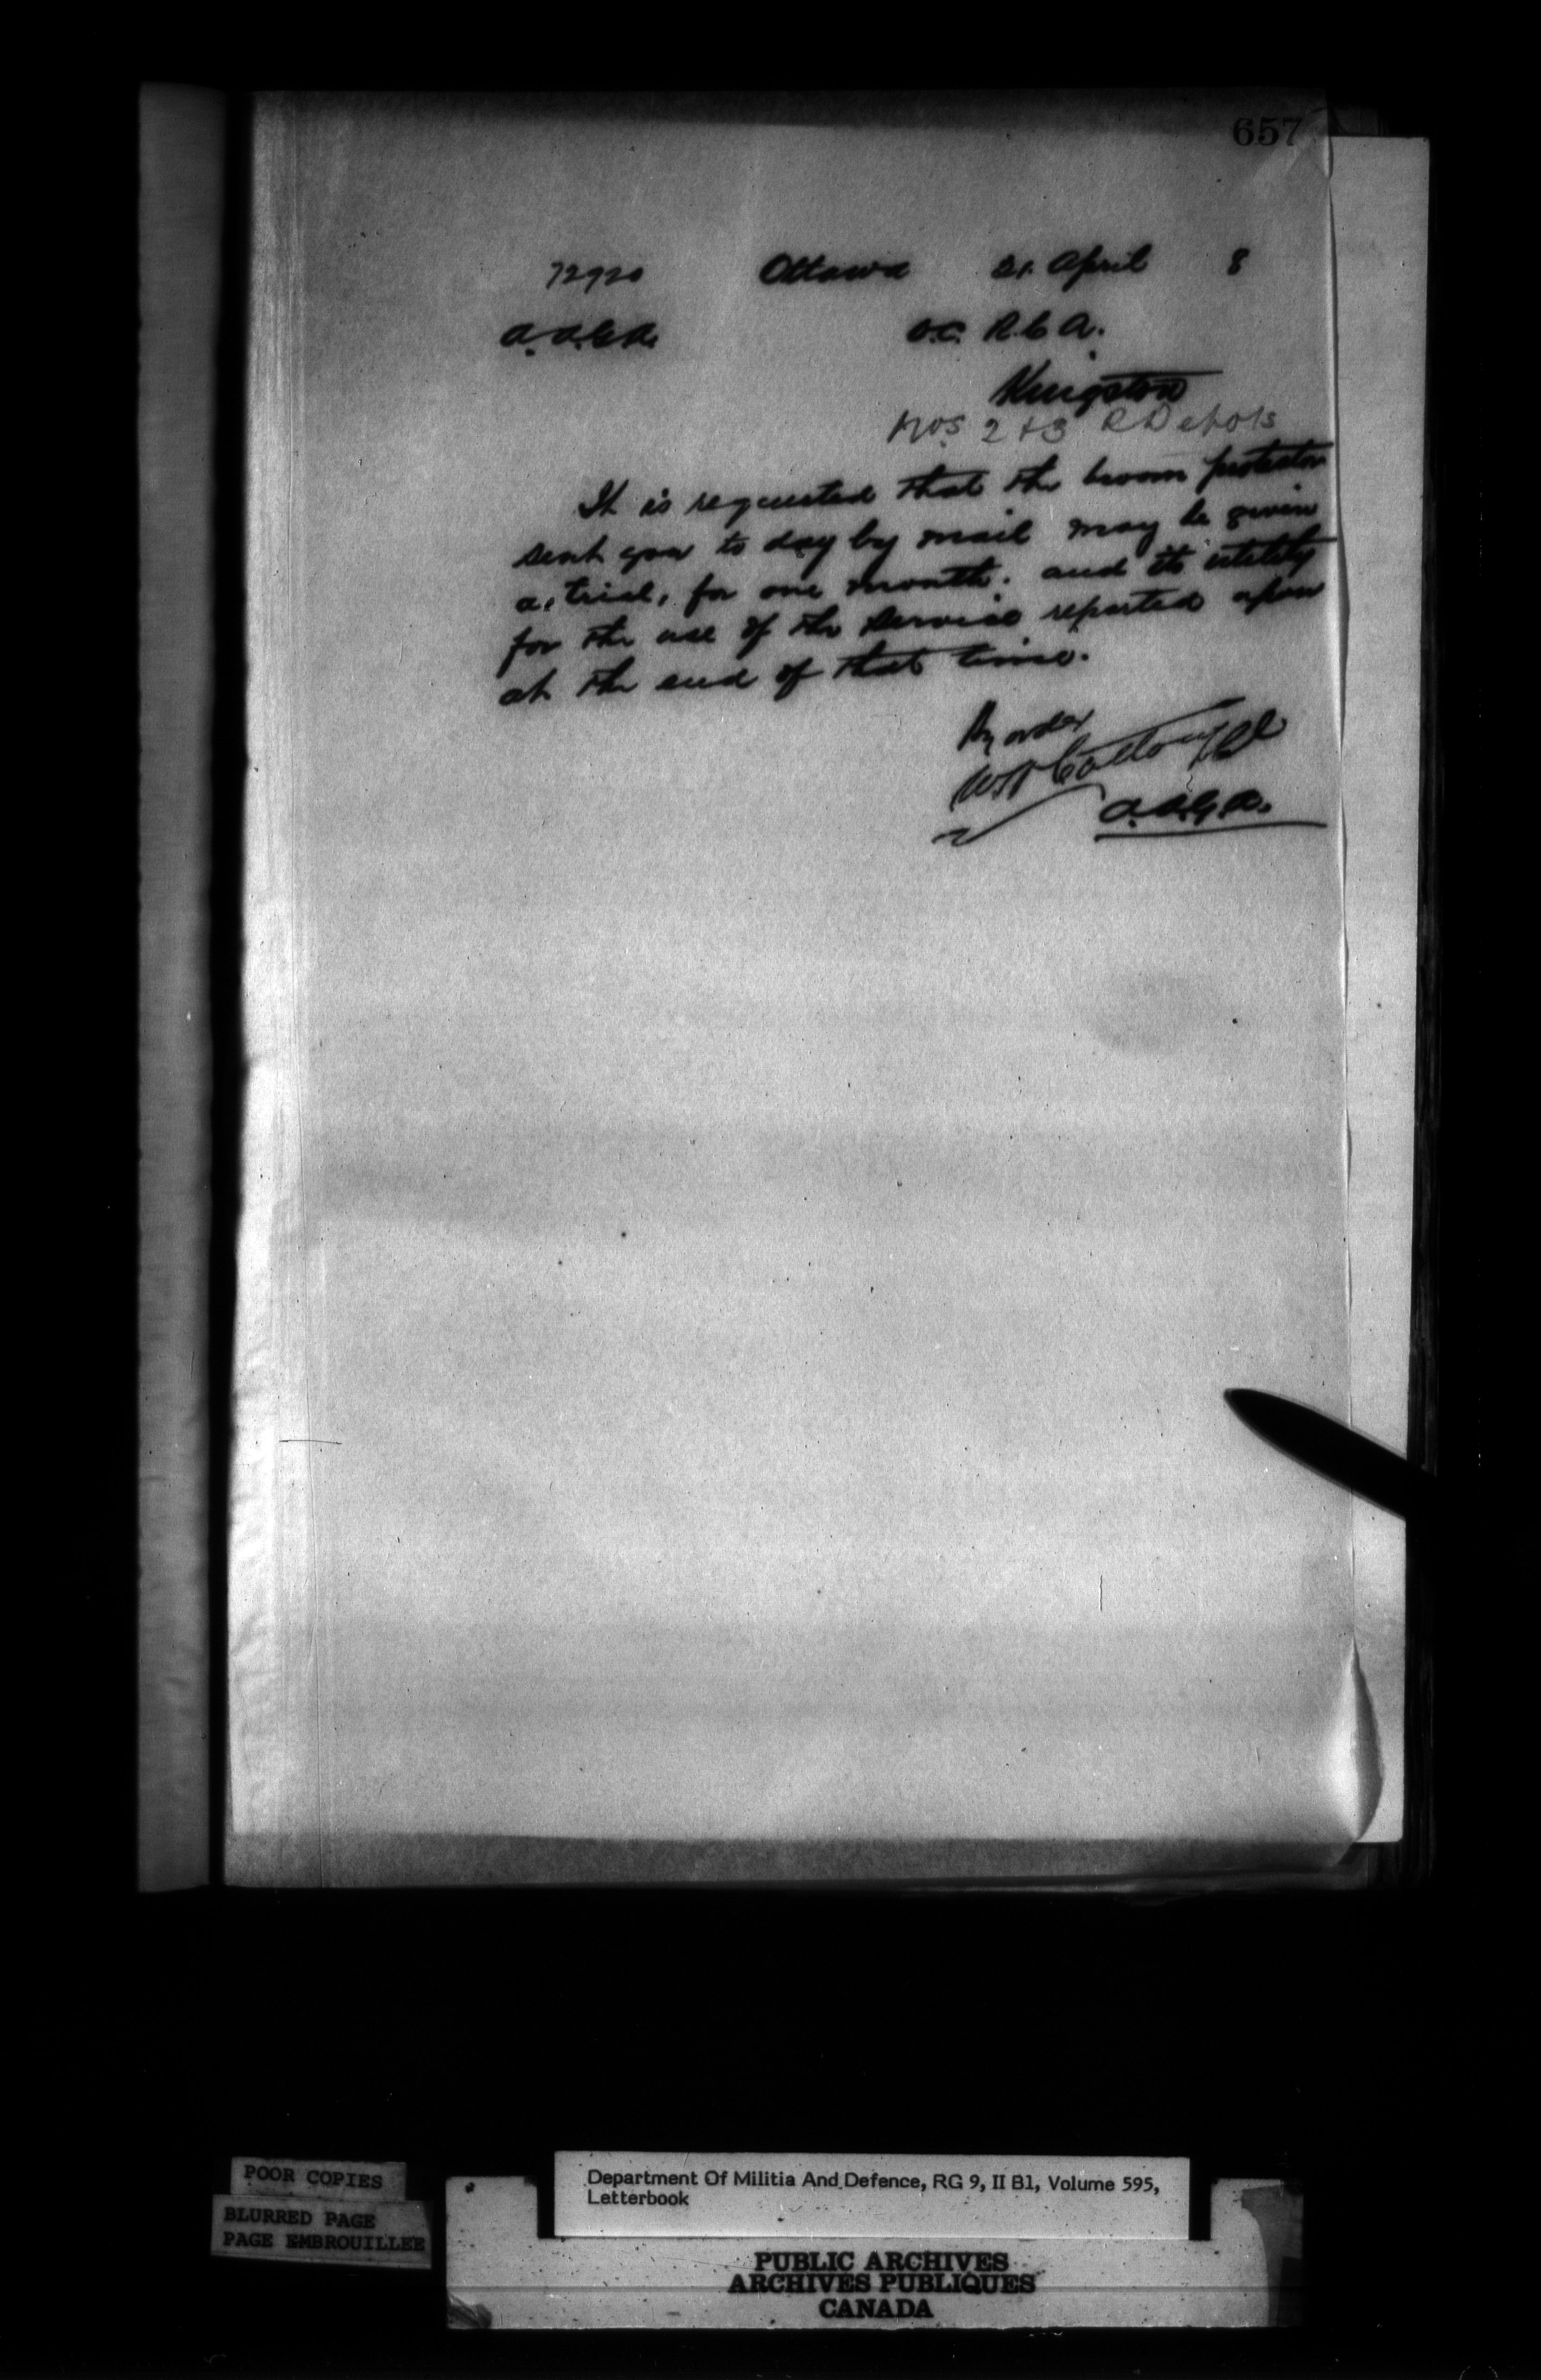 657
72920 Ottawa 21. April 8
A.A.G.A. O.C. R.C.A.
Kingston
Nos 2 & 3 R Depots
It is requested that the broom protector
sent you to day by mail may be given
a, trial, for one month. and its utility
for the use of the Service reported upon
at the end of that time.
By order
A.A.G.A.
POOR COPIES
BLURRED PAGE
PAGE EMBROUILLEE
Department Of Militia And Defence, RG 9, II B1, Volume 595,
Letterbook
PUBLIC ARCHIVES
ARCHIVES PUBLIQUES
CANADA